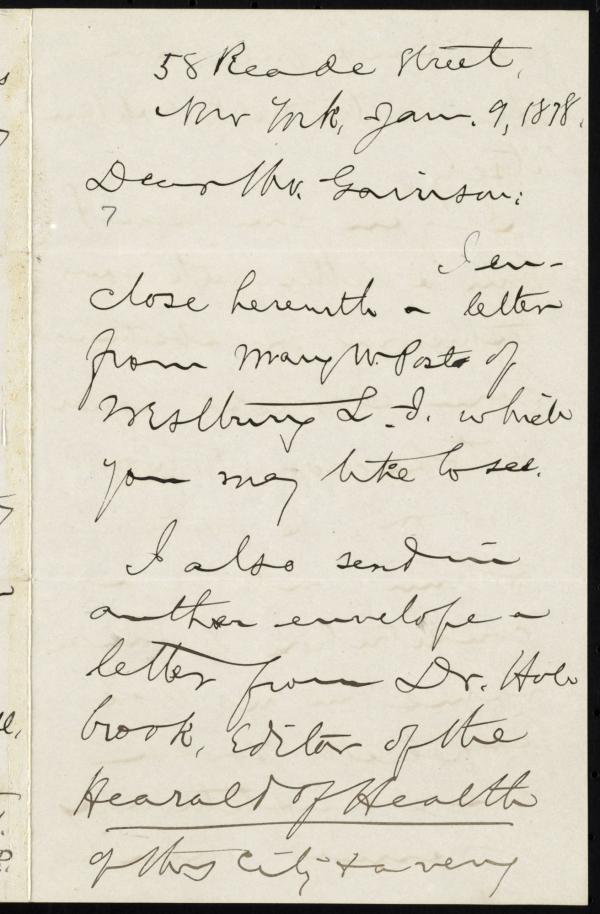 58 Reade Street,
New York, Jan. 9, 1878.
Dear Mr. Garrison:
7
I en-
close herewith a letter
from Mary W. Post of
Westbury L. I. which
you may like to see.
I also send in
another envelope a
letter from Dr. Hol-
brook, Editor of the
Hearald of Health
of this City & a very